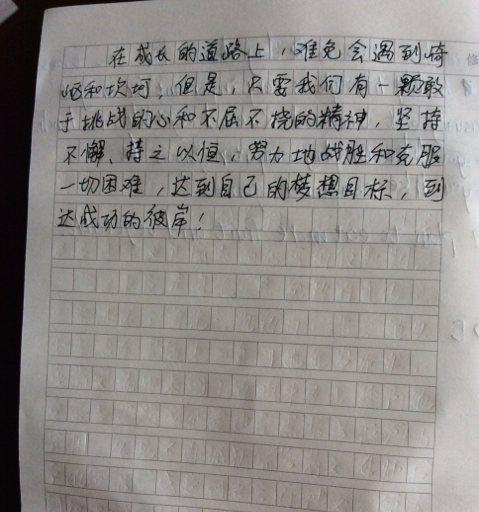 在成长的道路上，难免会遇到崎
岖和坎坷，但是，只要我们有一颗敢
于挑战的心和不屈不挠的精神，坚持
不懈、持之以恒，努力地战胜和克服
一切困难，达到自己的梦想目标，到
达成功的彼岸！